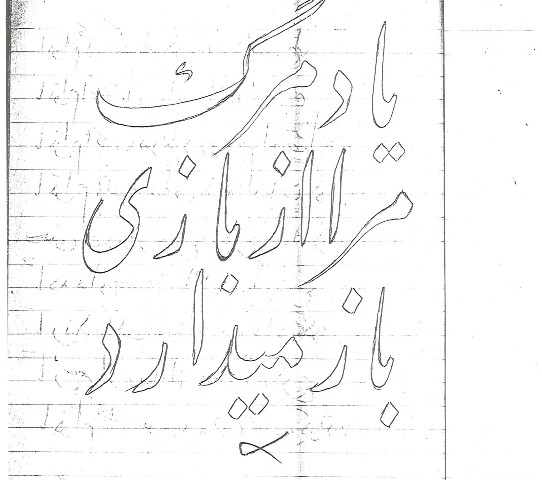 یاد مرگ
مرا از بازی
باز میدارد